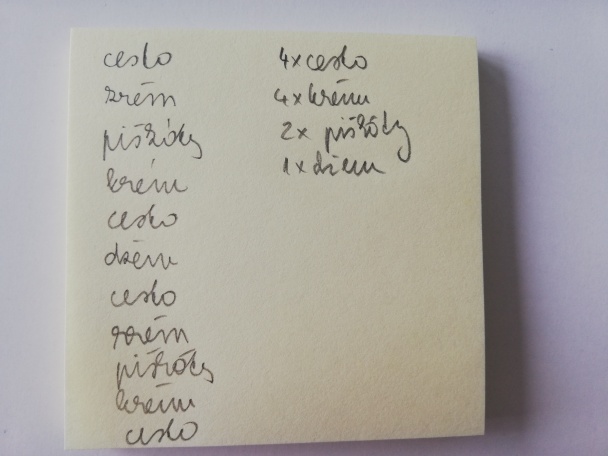 cesto
krém
piškóty
krém
cesto
džem
cesto
krém
piškóty
krém
cesto
4x cesto
4x krém
2x piškóty
1x džem